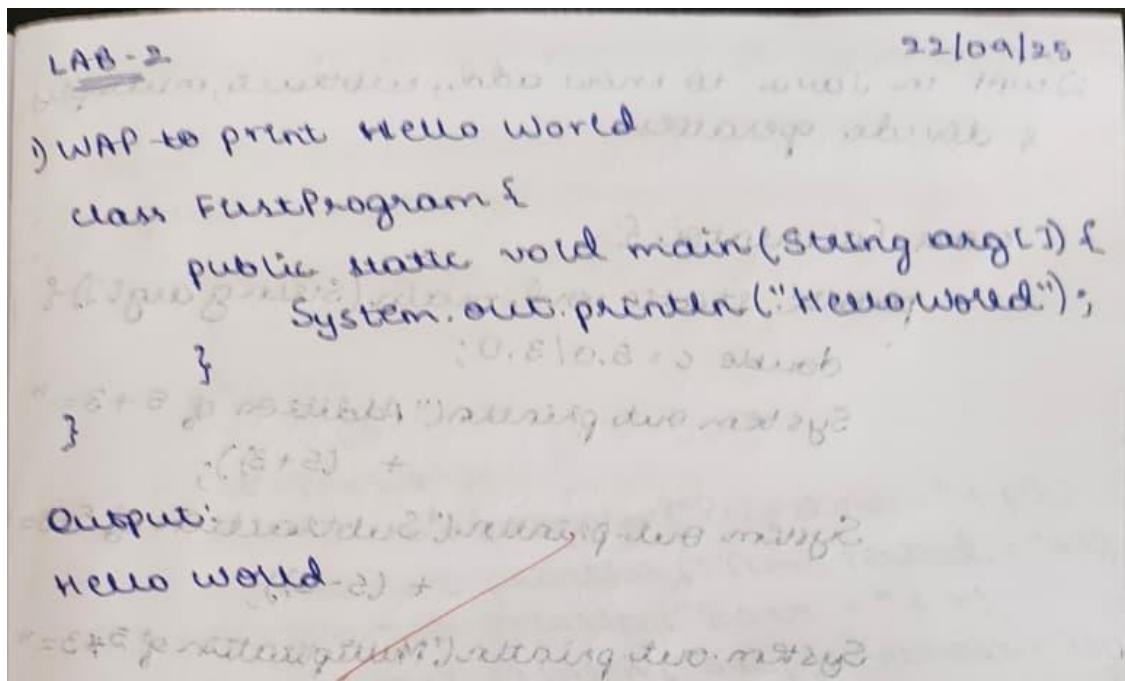 LAB-2
22/09/25
1) WAP to print Hello World
class FirstProgram {
public static void main(String arg[]) {
System.out.println("Hello, World");
}
}
Output:
Hello World